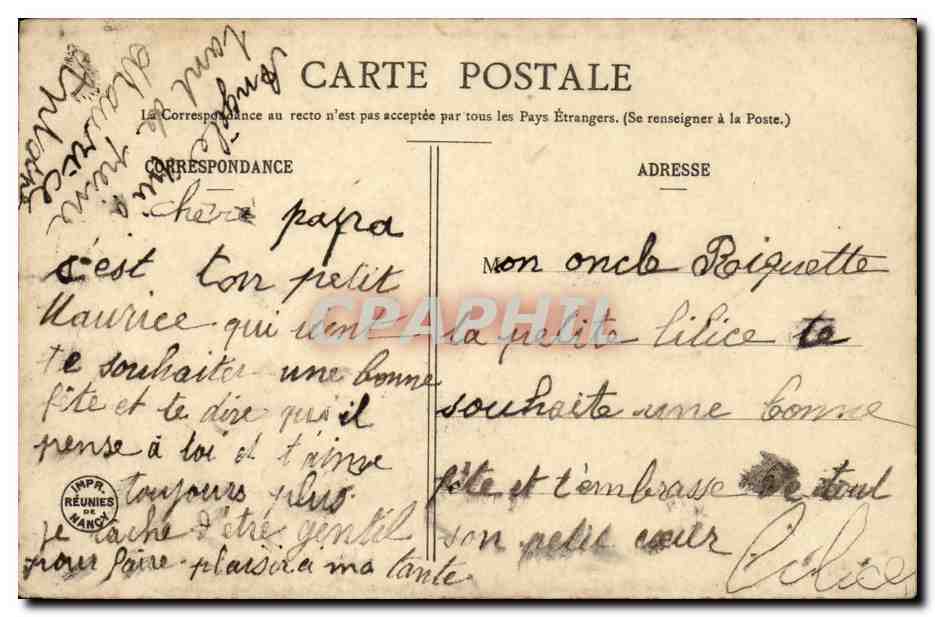 CARTE POSTALE
La Correspondance au recto n'est pas acceptée par tous les Pays Étrangers. (Se renseigner à la Poste.)
CORRESPONDANCE
ADRESSE
Angèle
tant de
Maurice
Antoine
cheré papa
c'est ton petit
Maurice qui vient
te souhaiter une bonne
fête et te dire qu'il
pense à toi et t'aime
toujours plus
je tache d'être gentil
pour faire plaisir a ma tante
IMPR.
RÉUNIES
DE
NANCY
Mon oncle Riquette
la petite lilice te
souhaite une bonne
fête et t'embrasse de tout
son petit cœur
Lilice
CPAPHIL